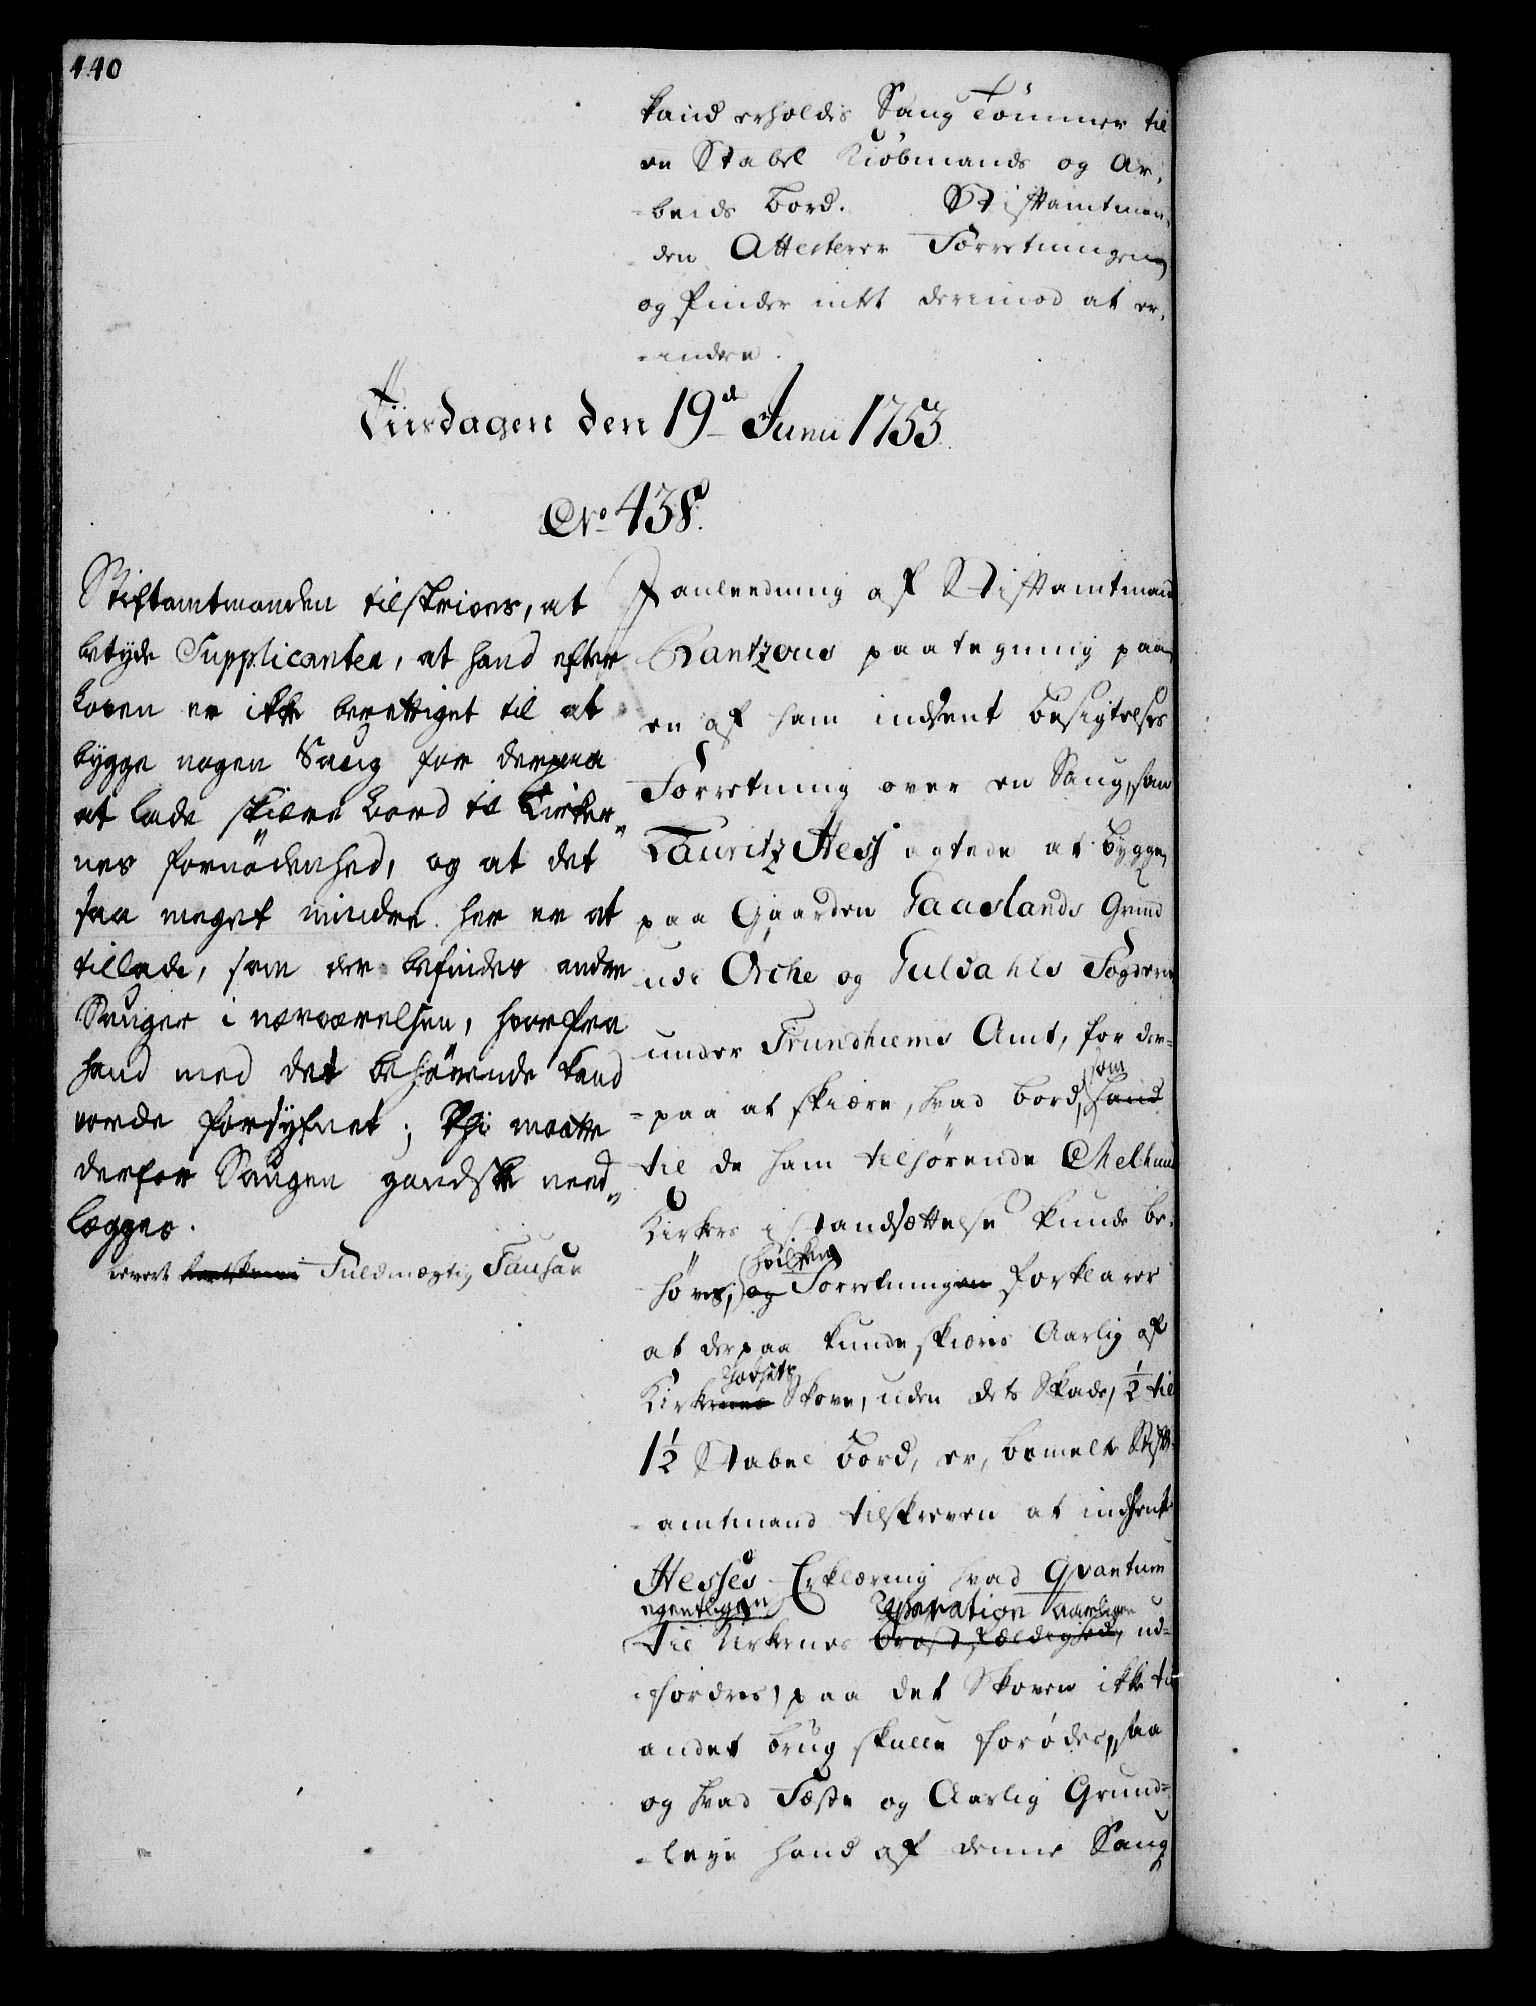 440
kand erholdes Saug Tömmer til
en Stabel Kiöbmands og Ar-
-beids Bord. Stiftamtman-
-den Attesterer Forretningen
og finder intet derimod at er-
-indre.
Tiirsdagen den 19de Junii 1753.
No 438.
Stiftamtmanden tilskrives, at
betyde Supplicanten, at hand efter
Loven er ikke berettiget til at
bygge nogen Saug for derpaa
at lade skiære Bord til Kirker-
nes fornödenhed, og at det
saa meget mindre her er at
tillade, som der befindes andre
Sauger i nærværelsen, hvorfra
hand med det behövende kand
vorde forsÿnet; Thi maatte
derfor Saugen gandske need-
lægges.
leveret Fuldmægtig Faushan
I anleedning af Stiftamtmand
Rantzous paategning paa
en af ham indsent Besigtelses
Forretning over en Saug, som
Lauritz Hess agtede at bygge
paa Gaarden Gaaslands Grund
udi Örche og Guldahls Fogderie
under Trundhiems Amt, for der-
som
-paa at skiære, hvad Bord, hand
til de ham tilhörende Melhuus
Kirkers i standsættelse kunde be-
hvilken
-höves, og Forretningen forklarer
at derpaa kunde skiæres Aarlig af
Godsets
Kirkernes Skove, uden dets Skade, ½ til
1½ Stabel Bord, er, bemelte Stift-
-amtmand tilskreven at indhente
Hesses Erklæring hvad Qvantum
egentligen Reparation aarligen
til Kirkernes Bröstfældighed, ud-
-fordres, paa det Skoven ikke til
andet brug skulle forödes, saa
og hvad Fæste og Aarlig Grund-
-leye hand af denne Saug